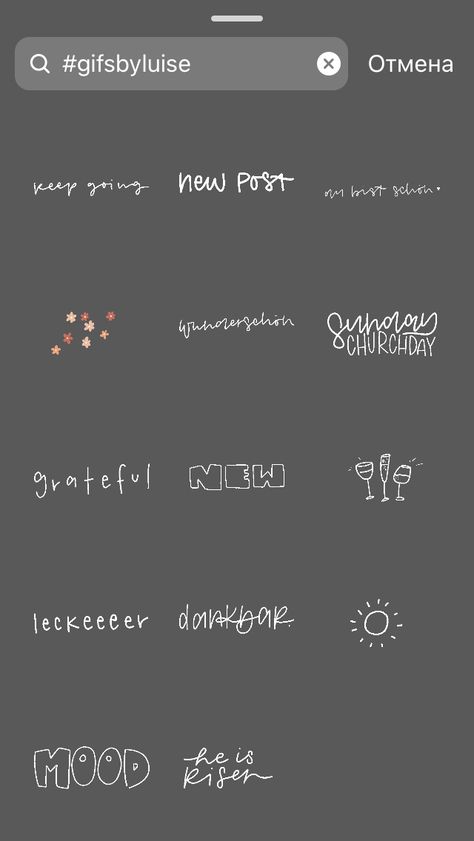 #gifsbyluise
Отмена
keep going
new post
du bist schön
wunderschön
sunday
CHURCHDAY
grateful
NEW
leckeeeer
dankbar
MOOD
he is
risen